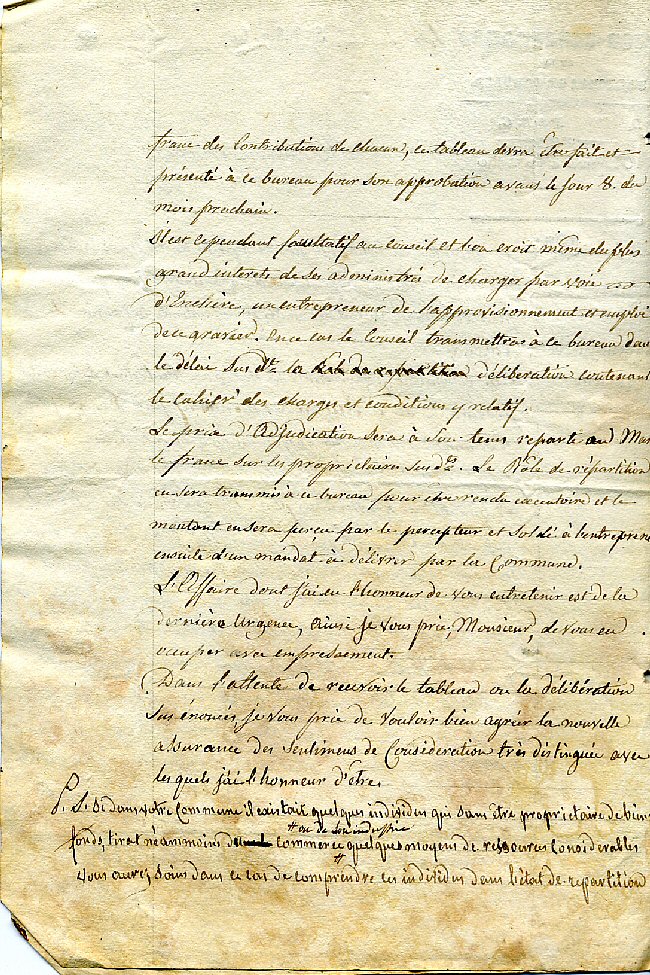 franc des Contributions de chacun, ce tableau devra être fait et
présenté à ce bureau pour son approbation avant le jour 8. du
mois prochain.
Il est cependant facultatif au Conseil et l'on croit même du plus
grand interets de ses administrés de charger par voie
d'Enchère, un entrepreneur de l'approvisionnement et emploi
de ce gravier. En ce cas le Conseil transmettra à ce bureau dans
le délai sus dt. la déliberation contenant
le cahier des charges et conditions y relatif.
Le prix d'Adjudication sera à son tems reparti au Marc
le franc sur les propriétaires susds. Le Rôle de répartition
en sera transmis à ce bureau pour être rendu executoire et le
montant en sera perçu par le percepteur et soldé à l'entrepren
ensuite d'un mandat à délivrer par la Commune.
L'Affaire dont j'ai eu l'honneur de vous entretenir est de la
dernière Urgence, ainsi je vous prie, Monsieur, de vous en
occuper avec empressement.
Dans l'attente de recevoir le tableau ou la délibération
Sus énoncés, je vous prie de vouloir bien agréer la nouvelle
assurance des sentimens de Considération très distinguée avec
les quels j'ai l'honneur d'être.
P. S. Si dans votre Commune il existait quelques individus qui sans être proprietaire de biens
# ou de son industrie
fonds, tirat néanmoins du commerce # quelques moyens de ressources Considerables
vous aurez soin dans ce cas de comprendre ces individus dans l'état de repartition